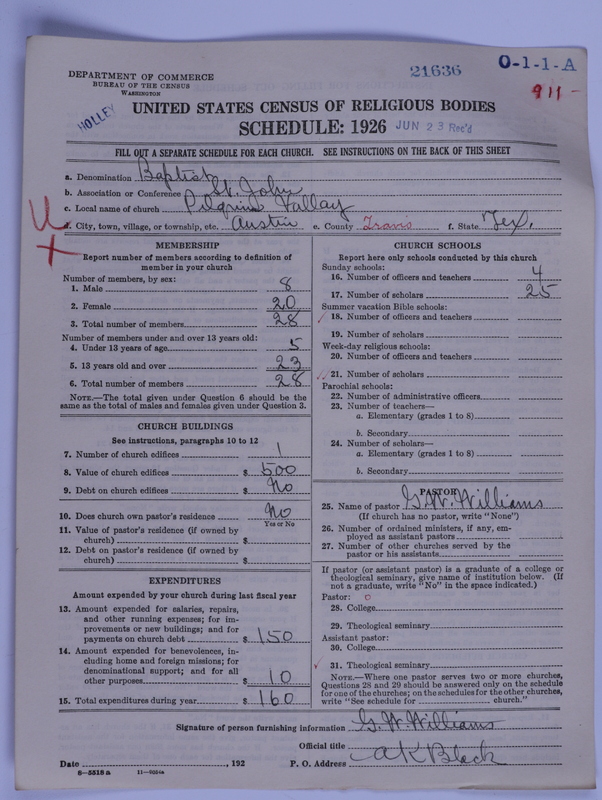 21636
O-1-1-A
911-
DEPARTMENT OF COMMERCE
BUREAU OF THE CENSUS
WASHINGTON
HOLLEY
UNITED STATES CENSUS OF RELIGIOUS BODIES
SCHEDULE: 1926 JUN 23 Rec'd
FILL OUT A SEPARATE SCHEDULE FOR EACH CHURCH. SEE INSTRUCTIONS ON THE BACK OF THIS SHEET
a. Denomination Baptist
b. Association or Conference St. John
c. Local name of church Pilgrim Vallay
d. City, town, village, or township, etc. Austin e. County Travis f. State Tex.
MEMBERSHIP
Report number of members according to definition of
member in your church
Number of members, by sex:
1. Male 8
2. Female 20
3. Total number of members 28
Number of members under and over 13 years old:
4. Under 13 years of age 5
5. 13 years old and over 23
6. Total number of members 28
NOTE.—The total given under Question 6 should be
same as the total of males and females given under Question 3.
CHURCH BUILDINGS
See instructions, paragraphs 10 to 12
7. Number of church edifices 1
8. Value of church edifices $ 500
9. Debt on church edifices $ No
10. Does church own pastor's residence No
Yes or No
11. Value of pastor's residence (if owned by
church) $
12. Debt on pastor's residence (if owned by
church) $
EXPENDITURES
Amount expended by your church during last fiscal year
13. Amount expended for salaries, repairs,
and other running expenses; for im-
provements or new buildings; and for
payments on church debt $ 150
14. Amount expended for benevolences, in-
cluding home and foreign missions; for
denominational support; and for all
other purposes $ 10
15. Total expenditures during year $ 160
CHURCH SCHOOLS
Report here only schools conducted by this church
Sunday schools:
16. Number of officers and teachers 4
17. Number of scholars 25
Summer vacation Bible schools:
18. Number of officers and teachers
19. Number of scholars
Week-day religious schools:
20. Number of officers and teachers
21. Number of scholars
Parochial schools:
22. Number of administrative officers
23. Number of teachers—
a. Elementary (grades 1 to 8)
b. Secondary
24. Number of scholars—
a. Elementary (grades 1 to 8)
b. Secondary
PASTOR
25. Name of pastor G. W. Williams
(If church has no pastor, write "None")
26. Number of ordained ministers, if any, em-
ployed as assistant pastors
27. Number of other churches served by the
pastor or his assistants
If pastor (or assistant pastor) is a graduate of a college or
theological seminary, give name of institution below. (If
not a graduate, write "No" in the space indicated.)
Pastor: 0
28. College
29. Theological seminary
Assistant pastor:
30. College
31. Theological seminary
NOTE.—Where one pastor serves two or more churches,
Questions 28 and 29 should be answered only on the schedule
for one of the churches; on the schedules for the other churches,
write "See schedule for church."
Signature of person furnishing information G. W. Williams
Official title
Date , 192 P. O. Address A K Black
6—5518 a